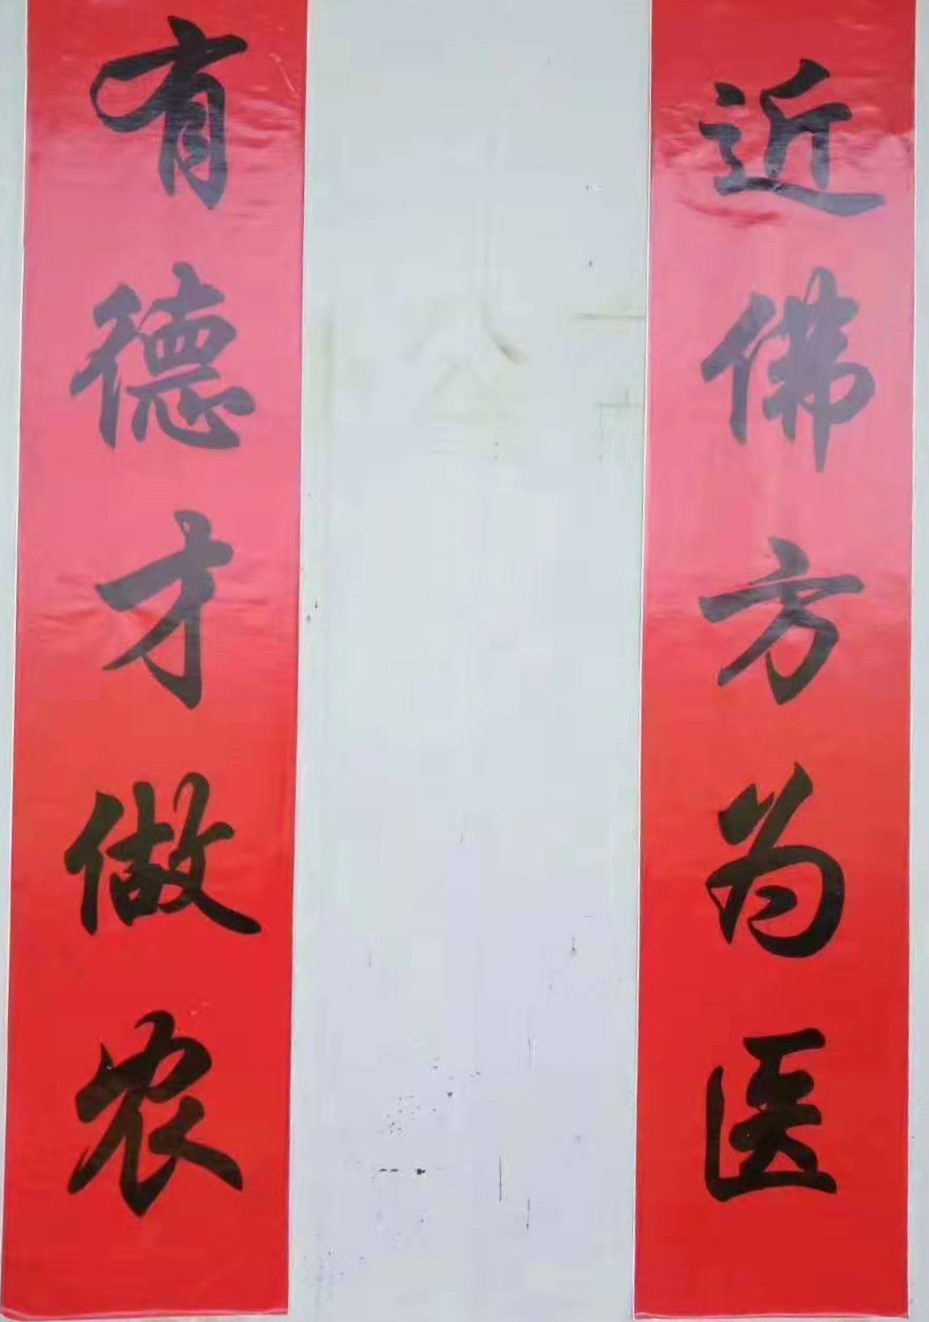 近佛方为医
有德才做农